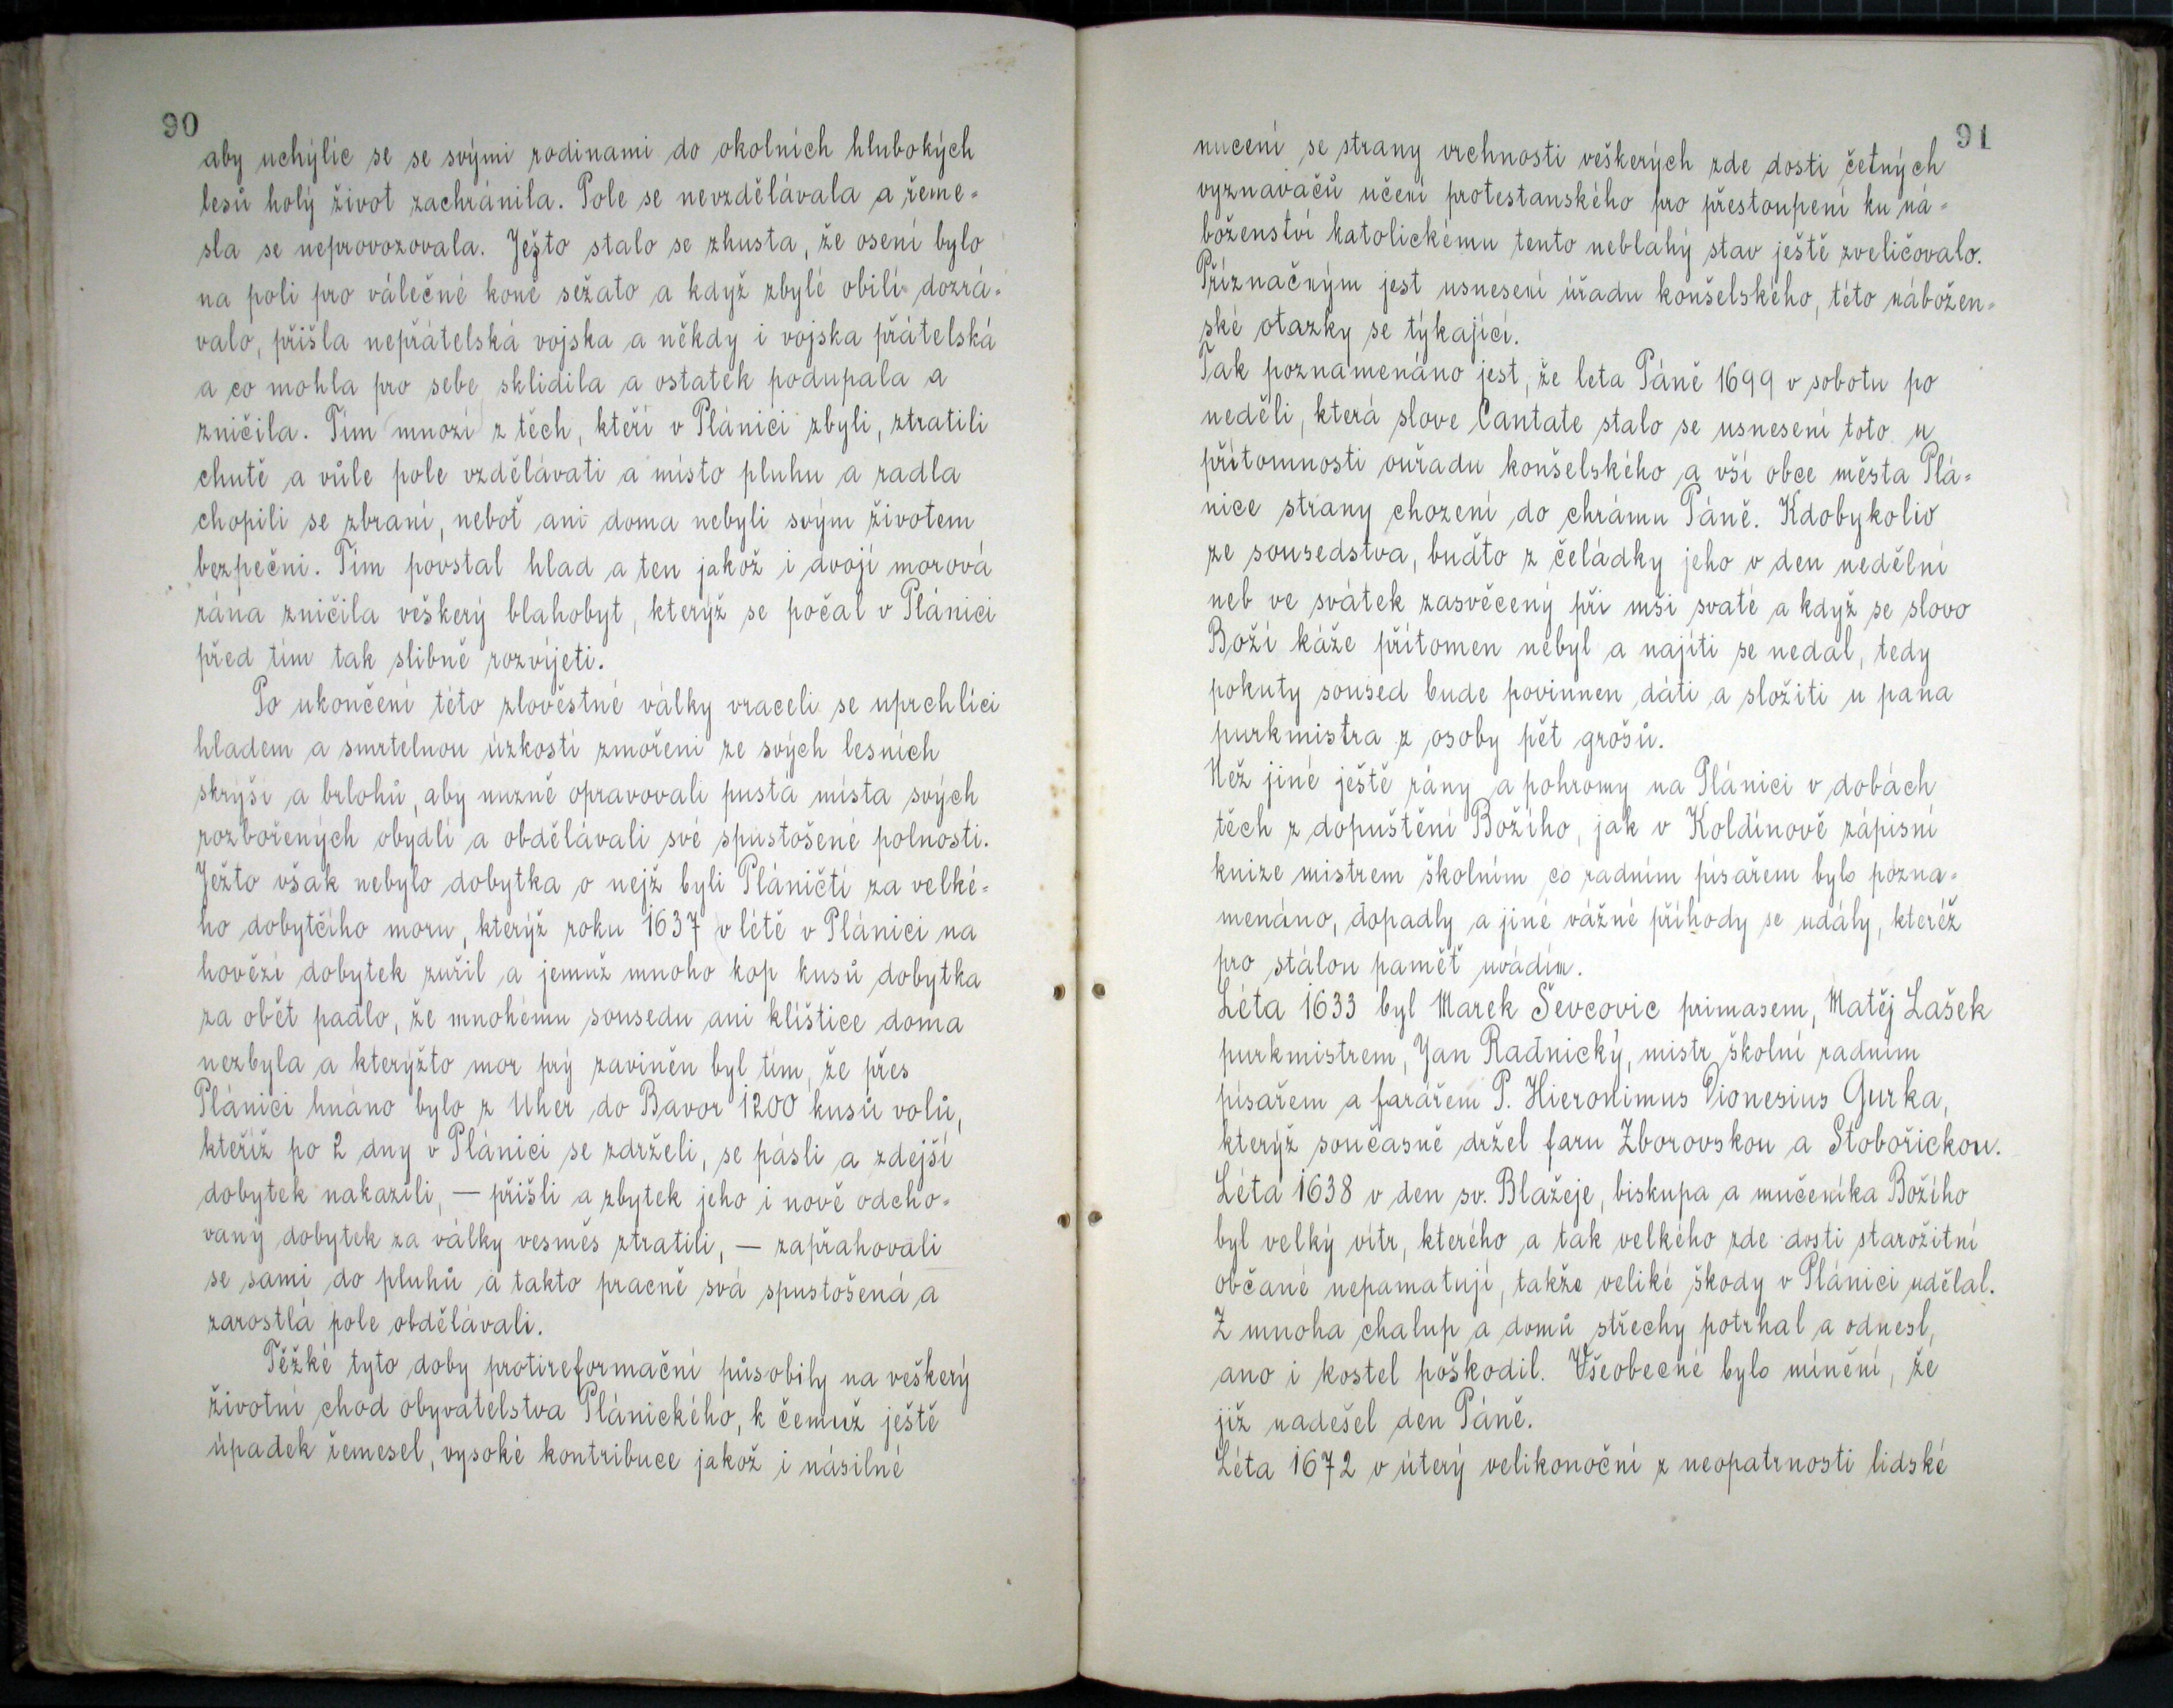 90
aby uchýlíc se se svými rodinami do okolních hlubokých
lesů holý život zachránila. Pole se nevzdělávala a řeme=
sla se neprovozovala. Ješto stalo se zhusta, že osení bylo
na poli pro válečné koně sežato a když zbylé obilí dozrá=
valo, přišla nepřátelská vojska a někdy i vojska přátelská
a co mohla pro sebe sklidila a ostatek podupala a
zničila. Tím mnozí z těch, kteří v Plánici zbyli, ztratili
chutě a vůle pole vzdělávati a místo pluhu a radla
chopili se zbraní, neboť ani doma nebyli svým životem
bezpečni. Tím povstal hlad a ten jakož i dvojí morová
rána zničila veškerý blahobyt, kterýž se počal v Plánici
před tím tak slibně rozvíjeti.
Po ukončení této zlověstné války vraceli se uprchlíci
hladem a smrtelnou úzkostí zmořeni ze svých lesních
skrýší a brlohů, aby nuzně opravovali pustá místa svých
rozbořených obydlí a obdělávali své spustošené polnosti.
Ježto však nebylo dobytka o nejž byli Pláničtí za velké=
ho dobytčího moru, kterýž roku 1637 v létě v Plánici na
hovězí dobytek zuřil a jemuž mnoho kop kusů dobytka
za obět padlo, že mnohému sousedu ani klíštice doma
nezbyla a kterýžto mor prý zaviněn byl tím, že přes
Plánici hnáno bylo z Uher do Bavor 1200 kusů volů,
kteříž po 2 dny v Plánici se zdrželi, se pásli a zdejší
dobytek nakazili, — přišli a zbytek jeho i nově odcho=
vaný dobytek za války vesměs ztratili, — zapřahovali
se sami do pluhů a takto pracně svá spustošená a
zarostlá pole obdělávali.
Těžké tyto doby protireformační působily na veškerý
životní chod obyvatelstva Plánického, k čemuž ještě
úpadek řemesel, vysoké kontribuce jakož i násilné
91
nucení se strany vrchnosti veškerých zde dosti četných
vyznavačů učení protestanského pro přestoupení ku ná=
boženství katolickému tento neblahý stav ještě zveličovalo.
Příznačným jest usnesení úřadu konšelského, této nábožen=
ské otazky se týkající.
Tak poznamenáno jest, že leta Páně 1699 v sobotu po
neděli, která slove Cantate stalo se usnesení toto u
přítomnosti ouřadu konšelského a vší obce města Plá=
nice strany chození do chrámu Páně. Kdobykoliv
ze sousedstva, buďto z čeládky jeho v den nedělní
neb ve svátek zasvěcený při mši svaté a když se slovo
Boží káže přítomen nebyl a najíti se nedal, tedy
pokuty soused bude povinnen dáti a složiti u pana
purkmistra z osoby pět grošů.
Než jiné ještě rány a pohromy na Plánici v dobách
těch z dopuštění Božího, jak v Koldínově zápisní
knize mistrem školním co radním písařem bylo pozna=
menáno, dopadly a jiné vážné příhody se udály, kteréž
pro stálou paměť uvádím.
Léta 1633 byl Marek Ševcovic primasem, Matěj Lašek
purkmistrem, Jan Radnický, mistr školní radním
písařem a farářem P. Hieronimus Dionesius Gurka,
kterýž současně držel faru Zborovskou a Stobořickou.
Léta 1638 v den sv. Blažeje, biskupa a mučeníka Božího
byl velký vítr, kterého a tak velkého zde dosti starožitní
občané nepamatují, takže veliké škody v Plánici udělal.
Z mnoha chalup a domů střechy potrhal a odnesl,
ano i kostel poškodil. Všeobecné bylo mínění, že
již nadešel den Páně.
Léta 1672 v úterý velikonoční z neopatrnosti lidské